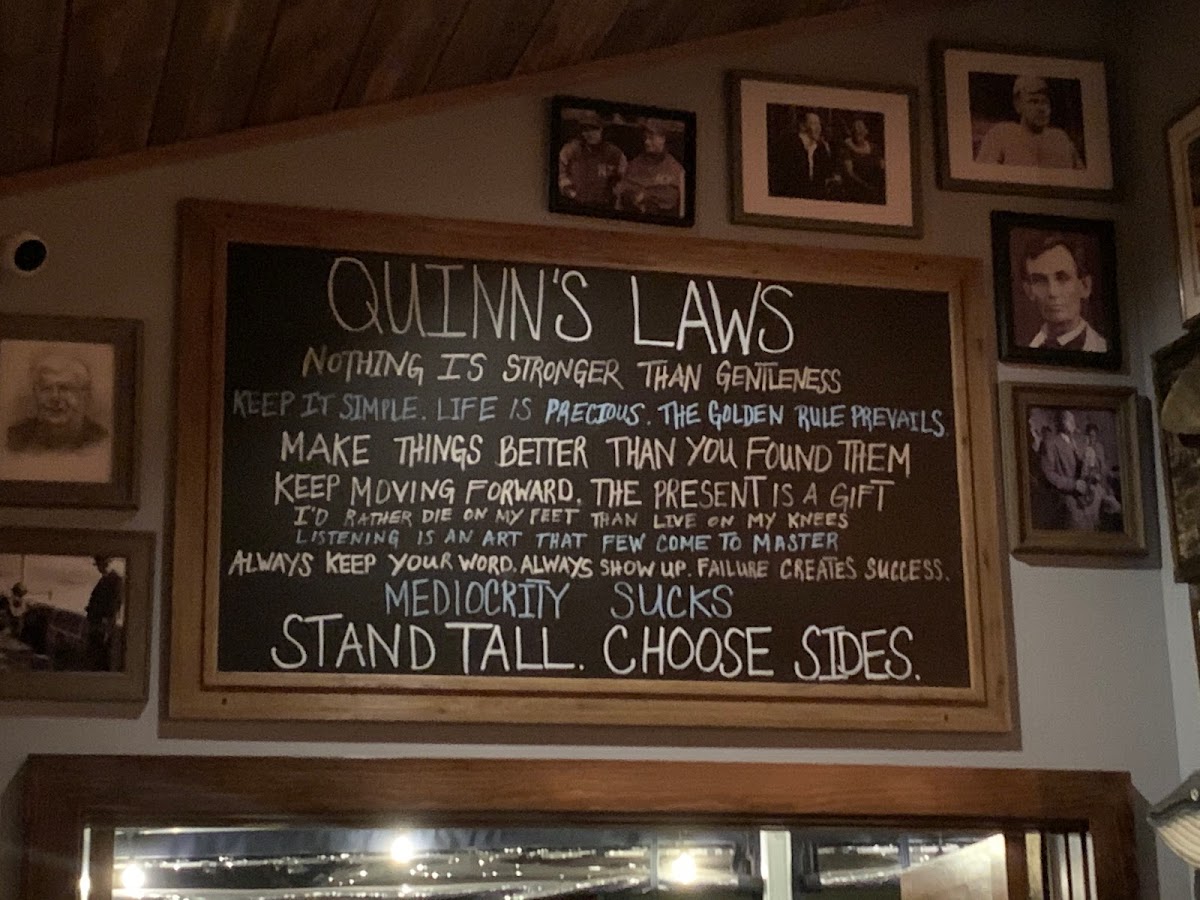 QUINN'S LAWS
NOTHING IS STRONGER THAN GENTLENESS
KEEP IT SIMPLE. LIFE IS PRECIOUS. THE GOLDEN RULE PREVAILS.
MAKE THINGS BETTER THAN YOU FOUND THEM
KEEP MOVING FORWARD. THE PRESENT IS A GIFT
I'D RATHER DIE ON MY FEET THAN LIVE ON MY KNEES
LISTENING IS AN ART THAT FEW COME TO MASTER
ALWAYS KEEP YOUR WORD. ALWAYS SHOW UP. FAILURE CREATES SUCCESS.
MEDIOCRITY SUCKS
STAND TALL. CHOOSE SIDES.